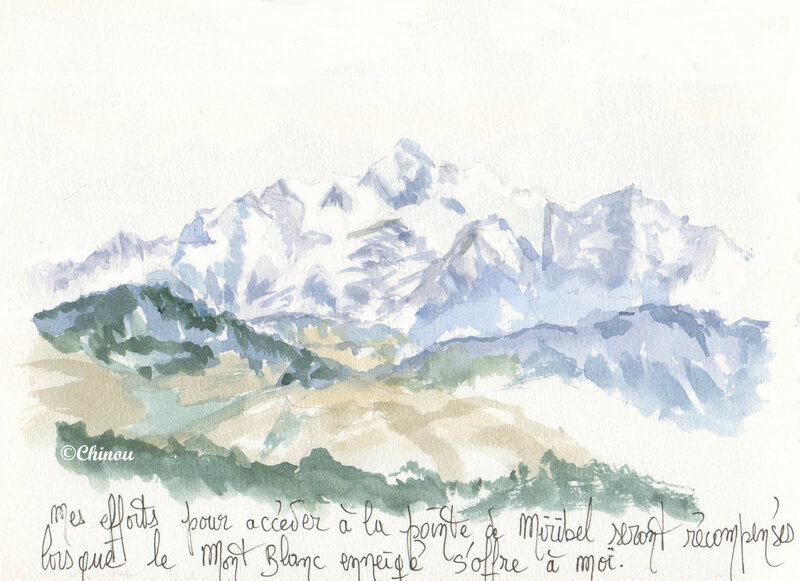 ©Chinou
Mes efforts pour accéder à la pointe de Miribel seront récompensés
lorsque le Mont Blanc enneigé s'offre à moi.